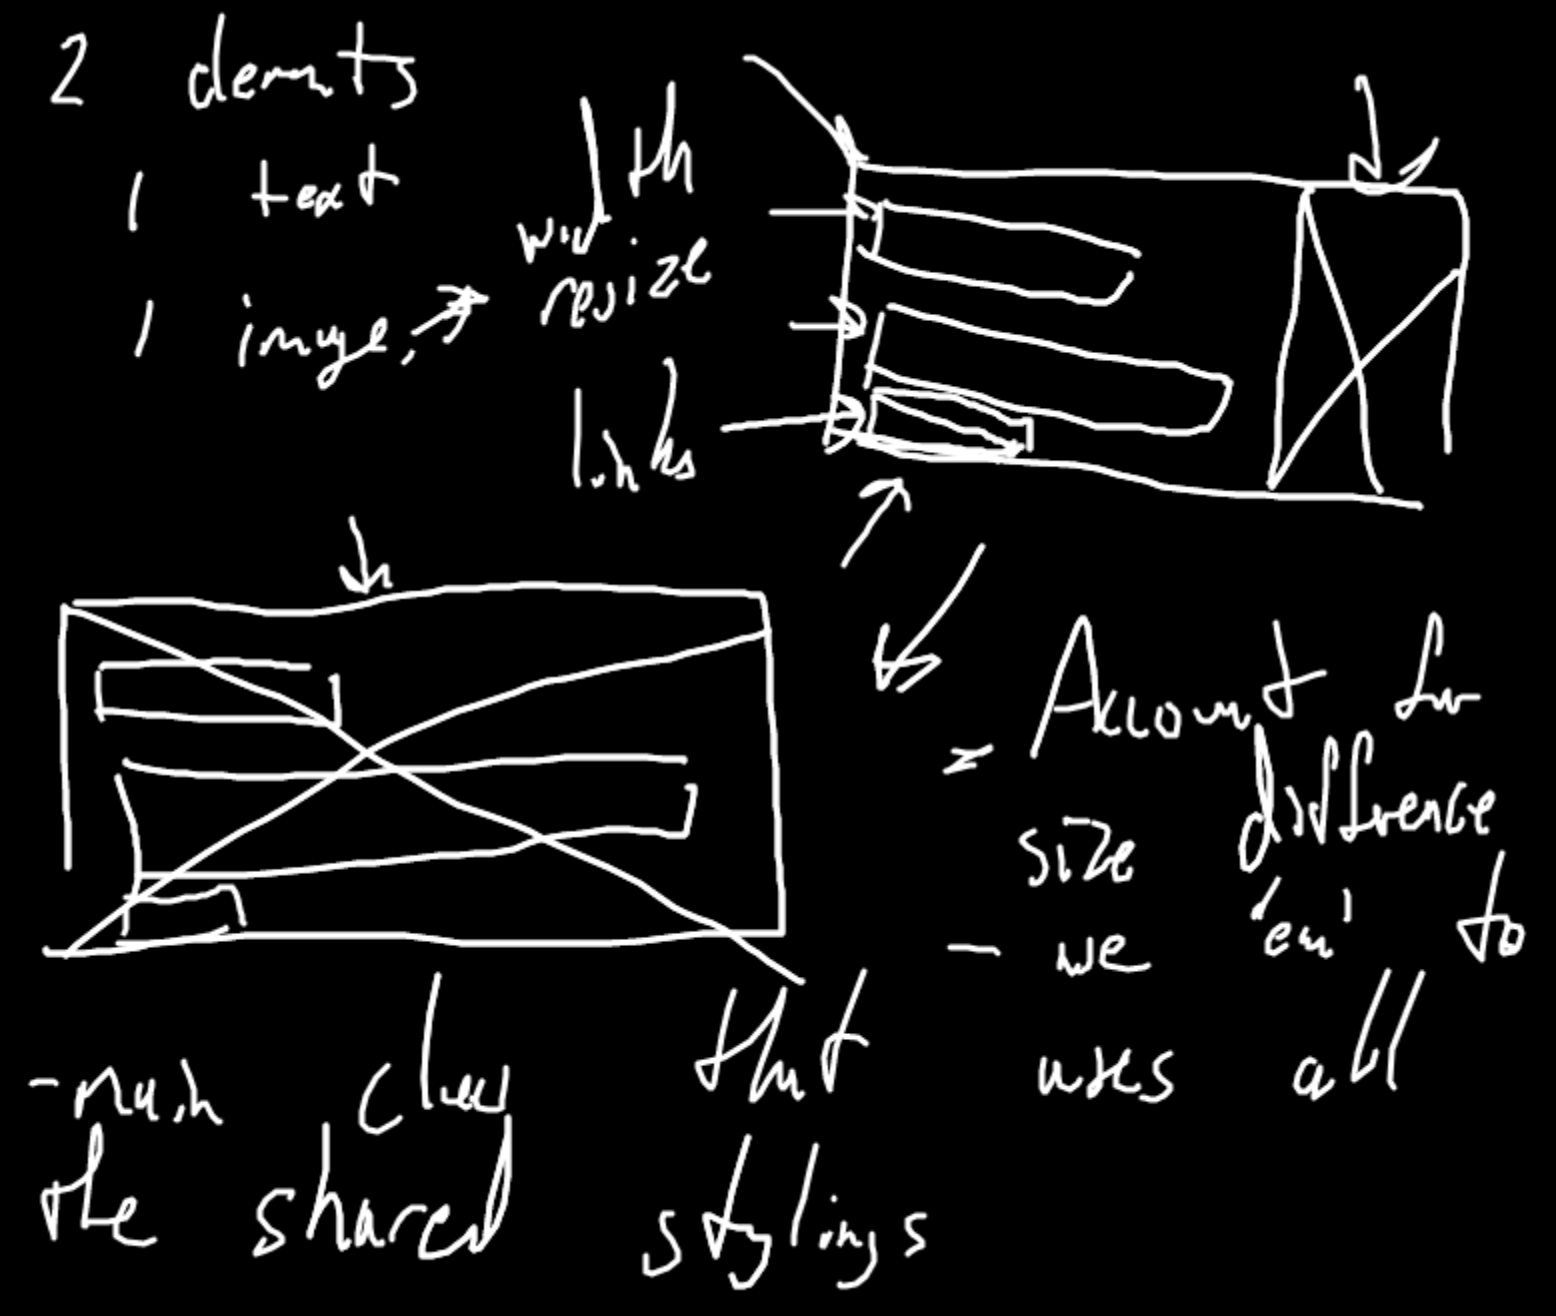 2 elements
1 text
1 image, → width
resize
links
- Account for
size difference
- we 'em' to
- main class that uses all
the shared stylings